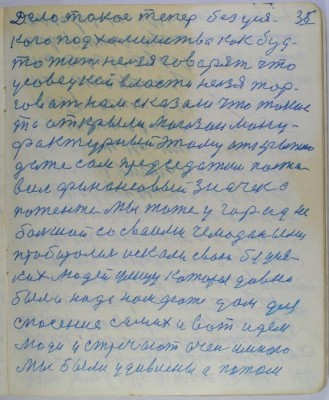 Дело такое тепер без вся- 35
кого подхолимства как буд-
то жит нелзя говорят что
у советской власти нелзя тор-
говат нам сказали что такое
та открыли магазин ману-
фактурный этому открытию
даже сам председатели поста-
вил финансовый значек о
мы тоже у город не
болшой со своими чемоданами
искали своих
ких людей улицу которы давно
были надо нам даже дом для
спасение самих и вот идем
люди у стречают очен много
мы были удивлены а потом